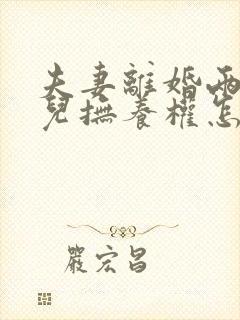 夫妻離婚兩
兒撫養權怎
嚴宏昌